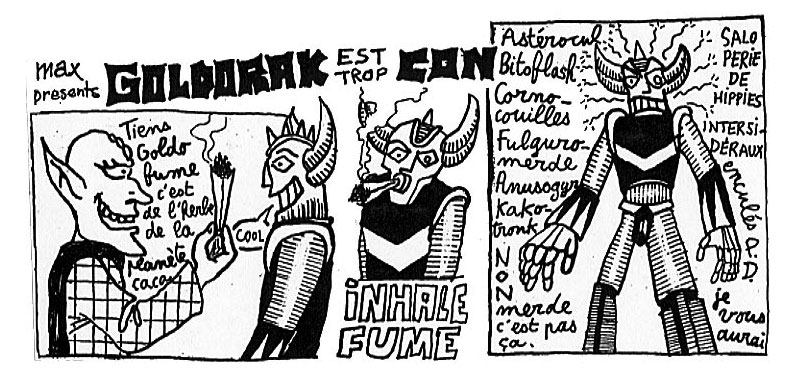 max
presents
GOLDORAK
EST
TROP
CON
Tiens
Goldo
fume
c'est
de l'Herbe
de la
planète
caca
COOL
INHALE
FUME
Astérocul
Bitoflash
Corno-
couilles
Fulguro-
merde
Anusogyr
Kako-
tronk
NON
merde
c'est pas
ça.
SALO
PERIE
DE
HIPPIES
INTERSI-
DÉRAUX
enculés
je
vous
aurai